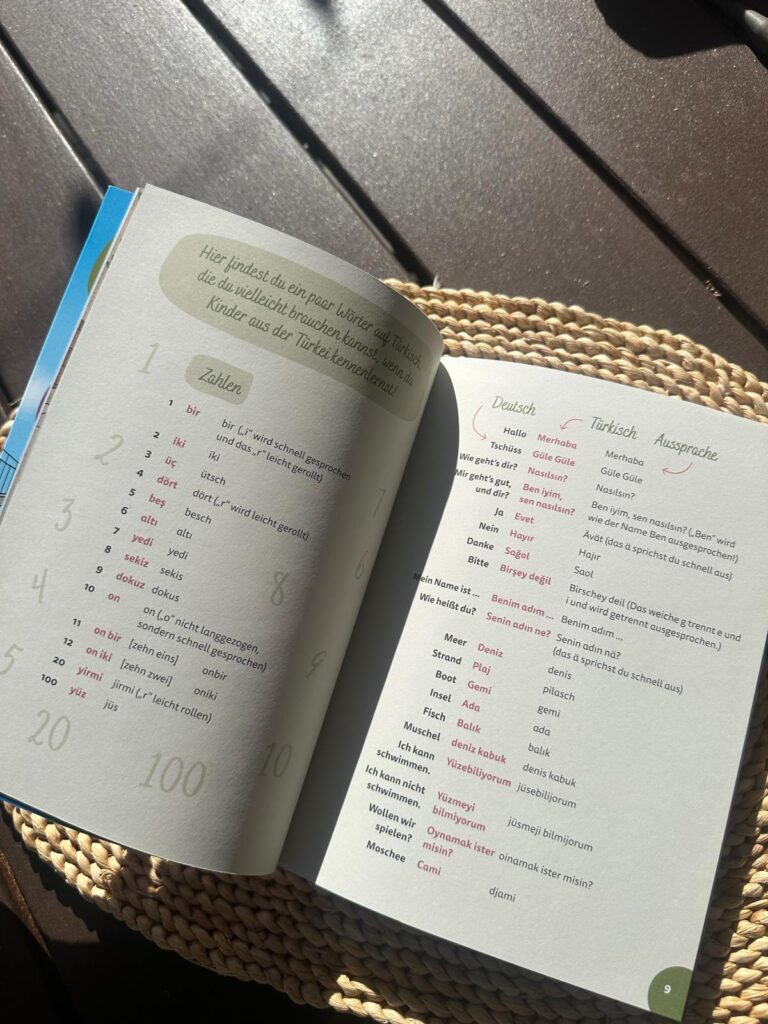 Hier findest du ein paar Wörter auf Türkisch,
die du vielleicht brauchen kannst, wenn du
Kinder aus der Türkei kennenlernst!
Zahlen
1 bir bir („i“ wird schnell gesprochen
und das „r“ leicht gerollt)
2 iki iki
3 üç ütsch
4 dört dört („r“ wird leicht gerollt)
5 beş besch
6 altı altı
7 yedi yedi
8 sekiz sekis
9 dokuz dokus
10 on on („o“ nicht langgezogen,
sondern schnell gesprochen)
11 on bir [zehn eins] onbir
12 on iki [zehn zwei] oniki
20 yirmi jirmi („r“ leicht rollen)
100 yüz jüs
1
2
3
4
5
20
100
10
9
8
6
7
Deutsch Türkisch Aussprache
Hallo Merhaba Merhaba
Tschüss Güle Güle Güle Güle
Wie geht's dir? Nasılsın? Nasılsın?
Mir geht's gut, Ben iyim, Ben iyim, sen nasılsın? („Ben“ wird
und dir? sen nasılsın? wie der Name Ben ausgesprochen!)
Ja Evet Ävät (das ä sprichst du schnell aus)
Nein Hayır Hajır
Danke Sağol Saol
Bitte Birşey değil Birschey deil (Das weiche g trennt e und
i und wird getrennt ausgesprochen.)
Mein Name ist ... Benim adım ... Benim adım ...
Wie heißt du? Senin adın ne? Senin adın nä?
(das ä sprichst du schnell aus)
Meer Deniz denis
Strand Plaj pilasch
Boot Gemi gemi
Insel Ada ada
Fisch Balık balık
Muschel deniz kabuk denis kabuk
Ich kann Yüzebiliyorum jüsebilijorum
schwimmen.
Ich kann nicht Yüzmeyi jüsmeji bilmijorum
schwimmen. bilmiyorum
Wollen wir Oynamak ister oinamak ister misin?
spielen? misin?
Moschee Cami djami
9